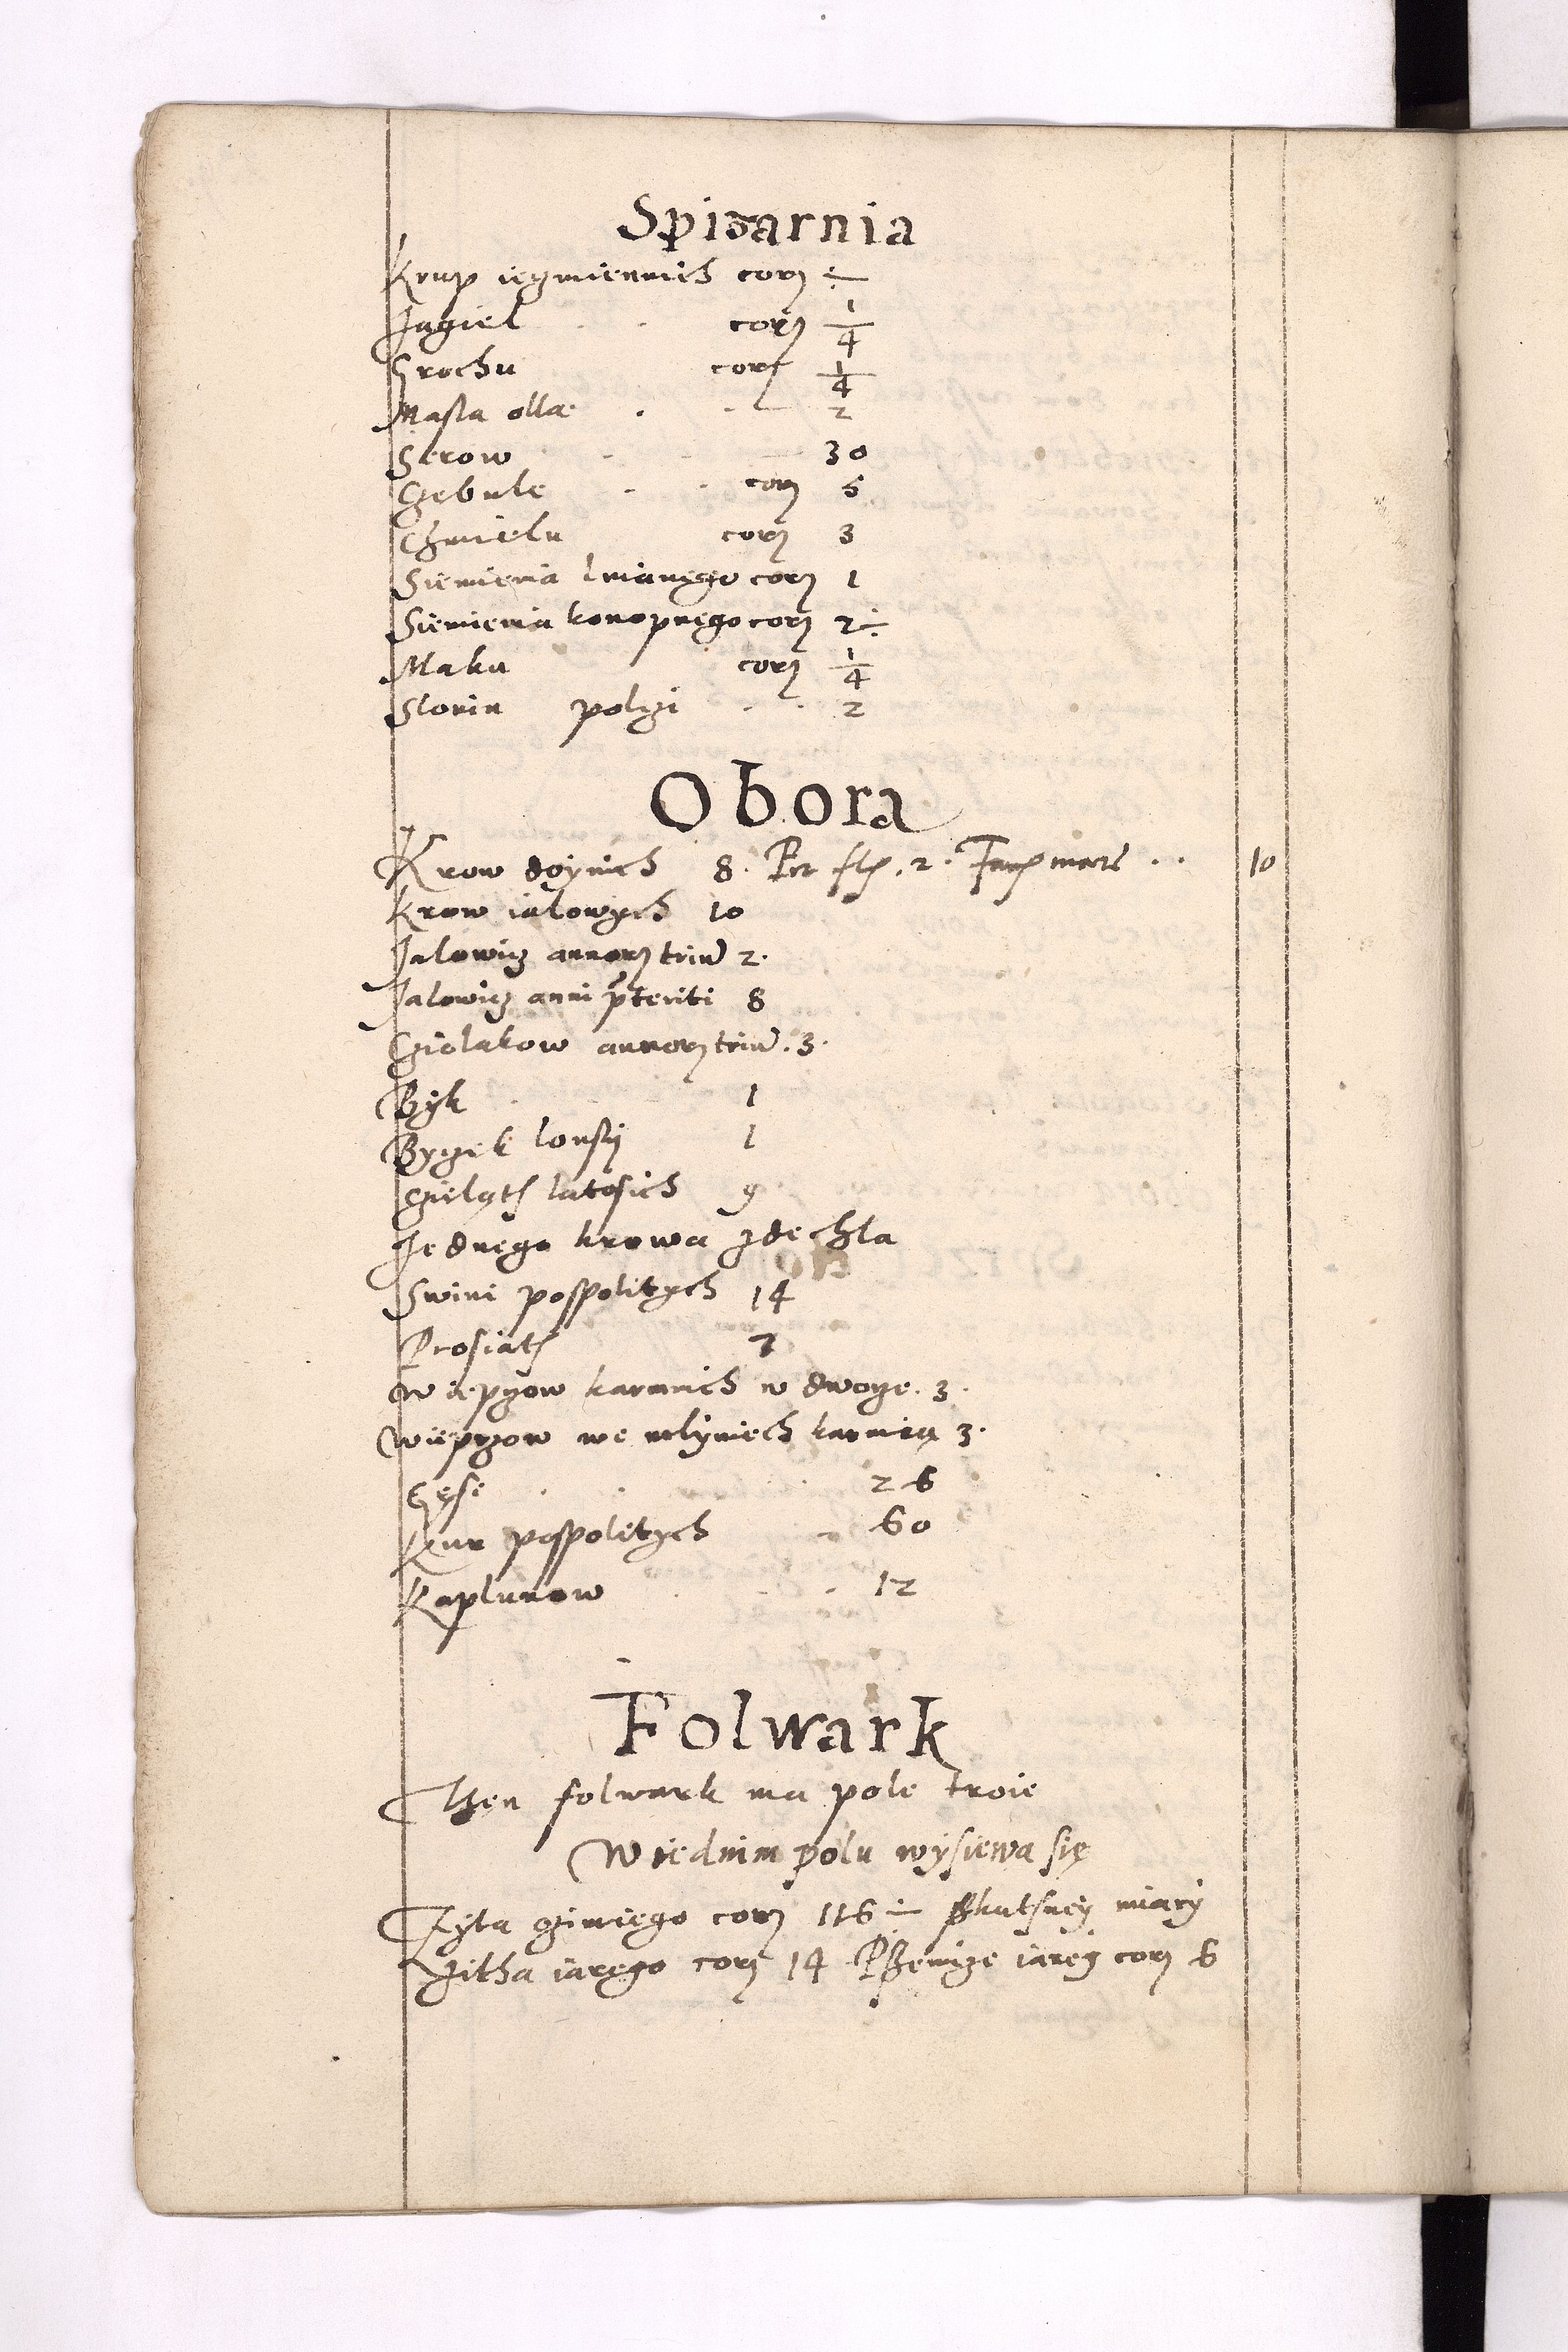 Spizarnia
Krup ięgmiennich corꝫ ÷
Jagieł corꝫ 1/4
Grochu corꝫ 1/4
Masla olla 2
Serow 30
Czebule corꝫ 5
Chmielu corꝫ 3
Siemienia lnianego corꝫ 1
Siemienia konopnego corꝫ 2÷
Maku corꝫ 1/4
Slonin polczi 2
Obora
Krow doynich 8. Per 2. 10
Krow iałowych 10
Jałowicz annorꝫ triū 2.
Jałowicz anni p̃teriti 8
Cziołakow annorꝫ triū. 3.
Byk 1
Byczek lonsky 1
Czieląth latosich 9
Jednego krowa zdechła
Swini pospolitych 14
Prosiąth 7
Wiepzow karmnich w dworze. 3.
Wiepzow we mlyniech karmią 3.
Gęsi 26
Kur pospolitych 60
Kapłunow 12
Folwark
Then folwark ma pole troie
W iednim polu wysiewa się
Zyta ozimiego corꝫ 116÷ miary
Zitha iarego corꝫ 14 Pszenicze iarey corꝫ 6